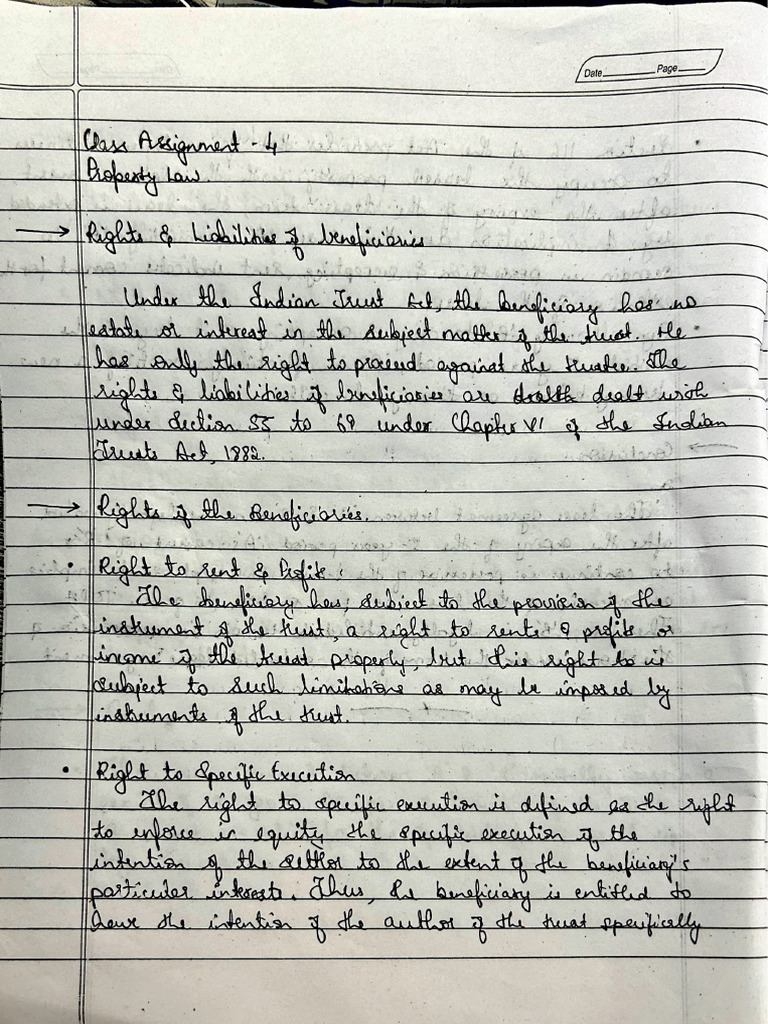 Date Page
Class Assignment - 4
Property Law.
→ Rights & Liabilities of beneficiaries
Under the Indian Trust Act, the beneficiary has no
estate or interest in the subject matter of the trust. He
has only the right to proceed against the trustee. The
rights & liabilities of beneficiaries are dealt with
under Section 55 to 69 under Chapter VI of the Indian
Trusts Act, 1882.
→ Rights of the Beneficiaries.
• Right to rent & Profit :
The beneficiary has, subject to the provision of the
instrument of the trust, a right to rents & profits or
income of the trust property, but this right to is
subject to such limitations as may be imposed by
instruments of the trust.
• Right to Specific Execution
The right to specific execution is defined as the right
to enforce in equity the specific execution of the
intention of the settlor to the extent of the beneficiary's
particular interests. Thus, the beneficiary is entitled to
have the intention of the author of the trust specifically